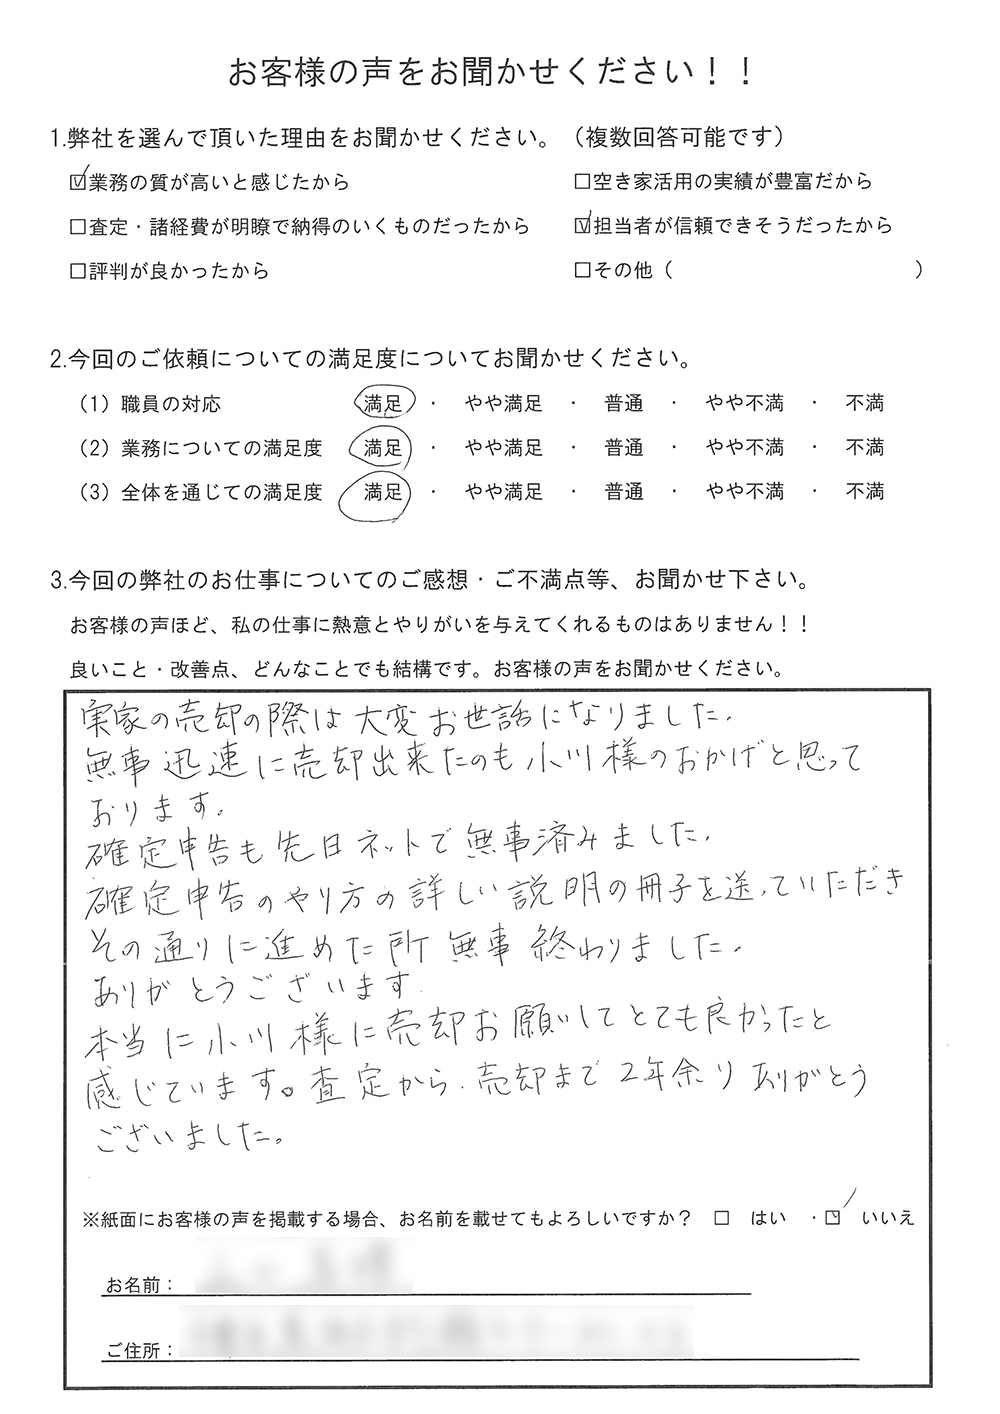 お客様の声をお聞かせください！！
1.弊社を選んで頂いた理由をお聞かせください。（複数回答可能です）
☑業務の質が高いと感じたから　□空き家活用の実績が豊富だから
□査定・諸経費が明瞭で納得のいくものだったから　☑担当者が信頼できそうだったから
□評判が良かったから　□その他（　）
2.今回のご依頼についての満足度についてお聞かせください。
（1）職員の対応　満足　・　やや満足　・　普通　・　やや不満　・　不満
（2）業務についての満足度　満足　・　やや満足　・　普通　・　やや不満　・　不満
（3）全体を通じての満足度　満足　・　やや満足　・　普通　・　やや不満　・　不満
3.今回の弊社のお仕事についてのご感想・ご不満点等、お聞かせ下さい。
お客様の声ほど、私の仕事に熱意とやりがいを与えてくれるものはありません！！
良いこと・改善点、どんなことでも結構です。お客様の声をお聞かせください。
実家の売却の際は大変お世話になりました。
無事迅速に売却出来たのも小川様のおかげと思って
おります。
確定申告も先日ネットで無事済みました。
確定申告のやり方の詳しい説明の冊子を送っていただき
その通りに進めた所無事終わりました。
ありがとうございます
本当に小川様に売却お願いしてとても良かったと
感じています。査定から売却まで2年余りありがとう
ございました。
※紙面にお客様の声を掲載する場合、お名前を載せてもよろしいですか？　□　はい　・☑　いいえ
お名前：
ご住所：